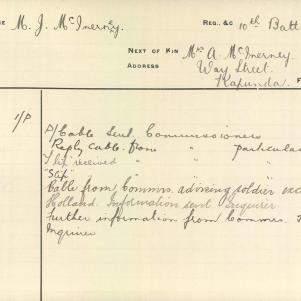 M. J. McInerney.
REG., &C 10th Batt
NEXT OF KIN Mrs A. McInerney
ADDRESS Way Street.
Kapunda.
1/P P/Cable Sent, Commissioners
Reply Cable from " particular
Slip received " "
"Slip" " "
Cable from Commrs. advising soldier exc
Holland. Information sent Inquirer
Further information from Commrs.
Inquirer